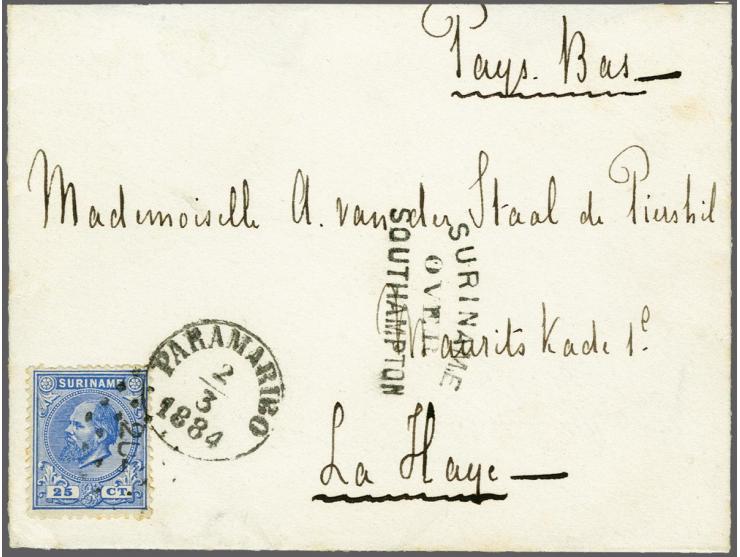 Pays-Bas
Mademoiselle A. van der Staal de Piershil
SURINAME
OVER
SOUTHAMPTON
Maurits Kade 1e
La Haye
PARAMARIBO
2/3
1884
SURINAME
25 CT.